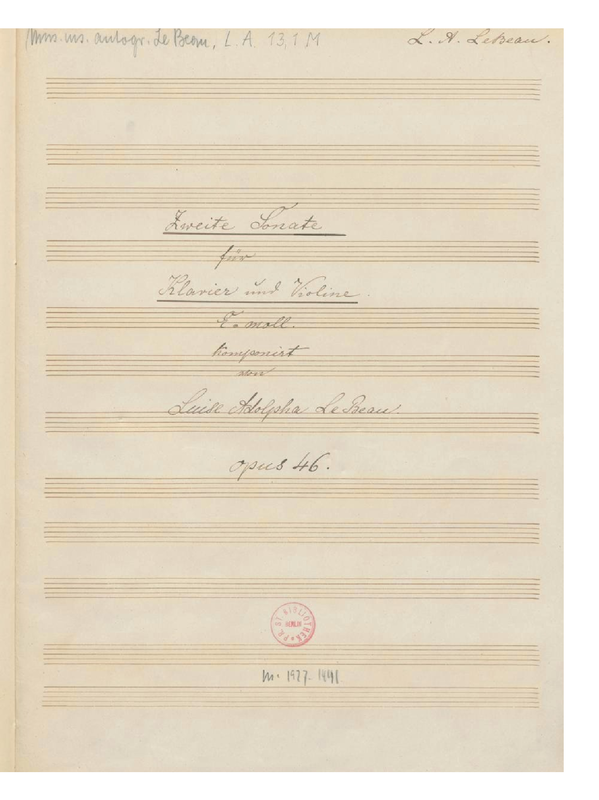 Mus. ms. autogr. Le Beau, L. A. 13, 1 M
L. A. LeBeau.
Zweite Sonate
für
Klavier und Violine.
E-moll.
komponirt
von
Luise Adolpha Le Beau.
opus 46.
PR. ST. BIBLIOTHEK
BERLIN
M. 1927. 1441